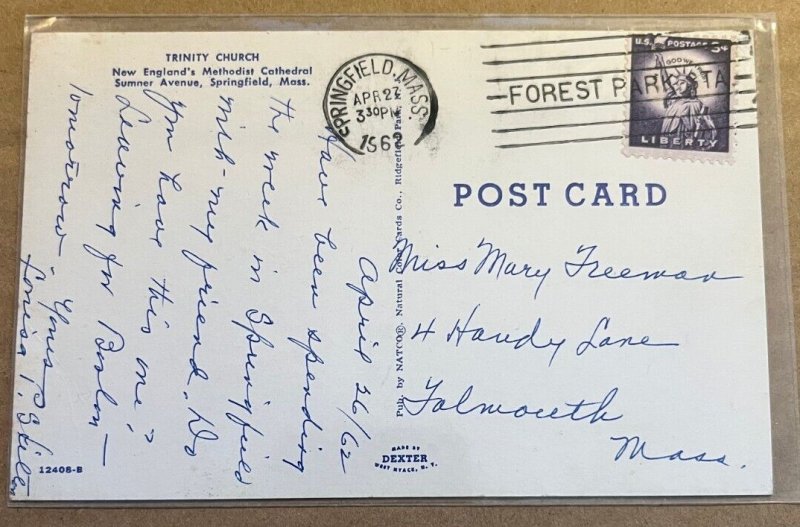 TRINITY CHURCH
New England's Methodist Cathedral
Sumner Avenue, Springfield, Mass.
SPRINGFIELD, MASS.
APR 27
3 30 PM
1962
FOREST PARK STA
U.S. POSTAGE 3¢
LIBERTY
POST CARD
April 26/62
Have been spending
the week in Springfield
with my friend. Do
you have this one?
Leaving for Boston
tomorrow - Yours
Louisa P.
Pub. by NATCO®. Natural Color Cards Co., Ridgefield Park,
Miss Mary Freeman
4 Handy Lane
Falmouth
Mass.
MADE BY
DEXTER
WEST NYACK, N. Y.
12408-B